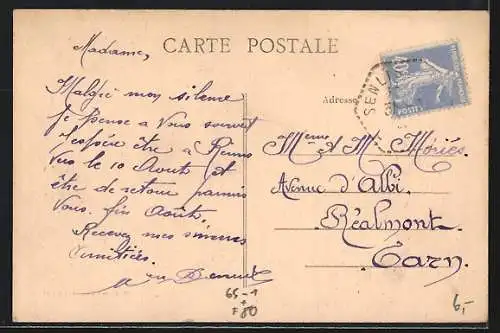 CARTE POSTALE
Madame,
Malgré mon silence
je pense a vous souvent
J'espère être a Reims
vers le 10 Aout et
être de retour parmis
Vous. fin Août.
Recevez mes sincères
amitiées.
Adresse
SENLI
40
POSTES
Meme et Mr Moriès.
Avenue d'Albi.
Réalmont.
Tarn.
65-1
F80
6,-